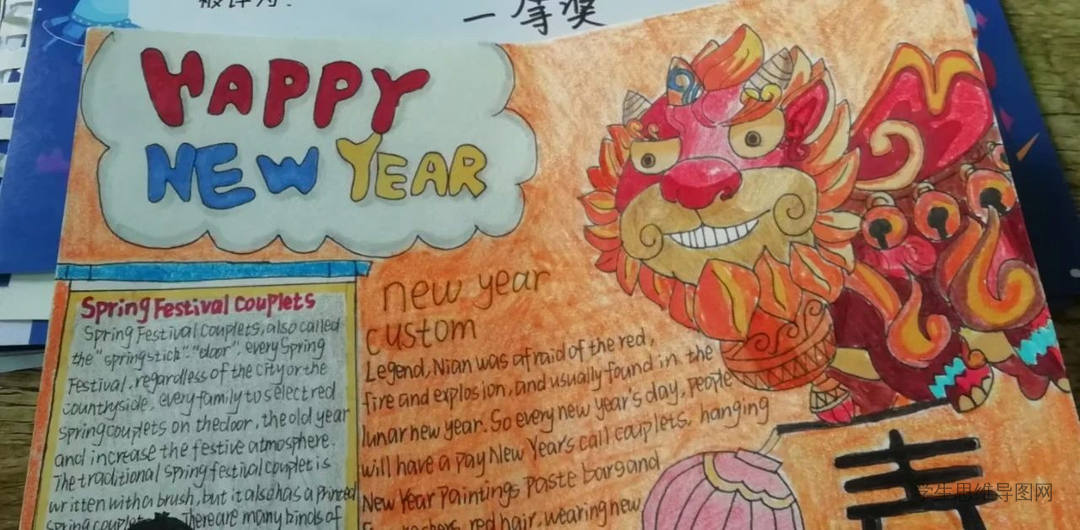 被评为:
一等奖
HAPPY
NEW YEAR
Spring Festival couplets
Spring Festival couplets, also called
the "spring stick" "door", every Spring
Festival, regardless of the city or the
countryside, every family to select red
spring couplets on the door, the old year
and increase the festive atmosphere.
The traditional spring festival couplet is
written with a brush, but it also has a printed
spring couplet There are many kinds of
new year
custom
Legend, Nian was afraid of the red,
fire and explosion, and usually found in the
lunar new year. So every new year's day, people
will have a pay New Year's call couplets, hanging
New Year Paintings Paste bars and
red hair, wearing new
学生思维导图网